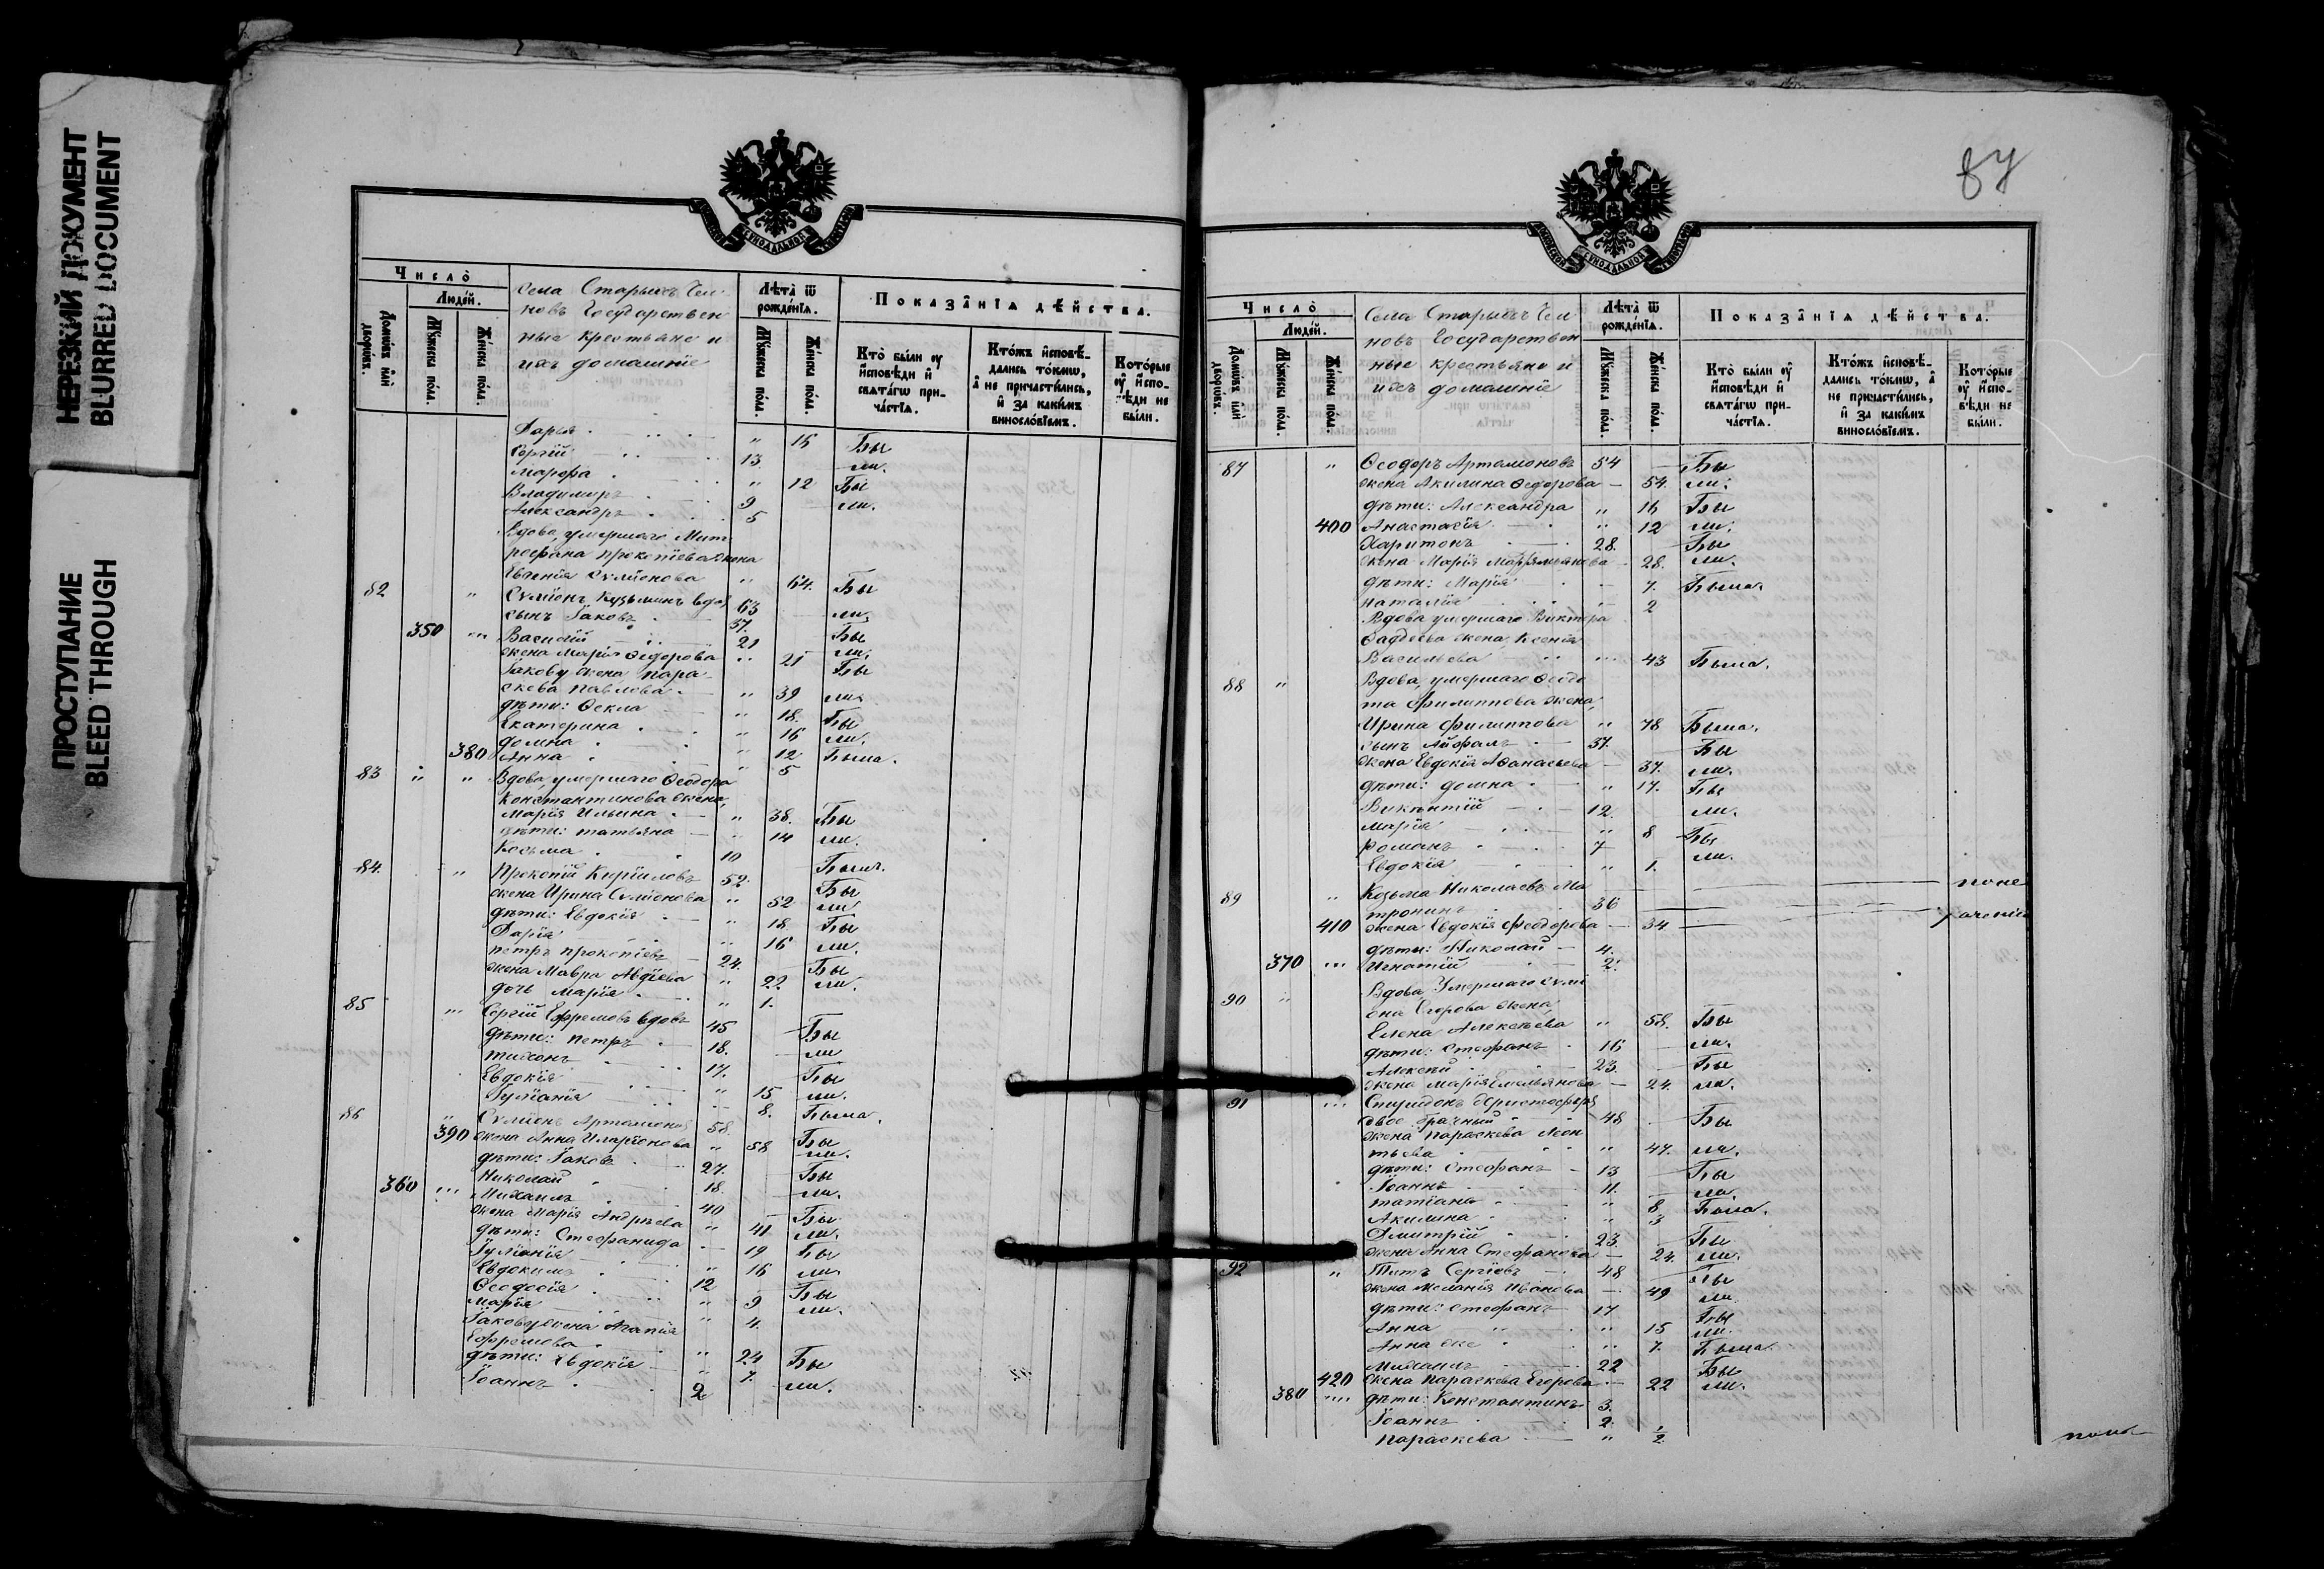 НЕРЕЗКИЙ ДОКУМЕНТ
BLURRED DOCUMENT
ПРОСТУПАНИЕ
BLEED THROUGH
Число̀
Людей.
Домѡвъ или дворѡвъ.
Мꙋжеска полꙋ.
Женска полꙋ.
Села Старыхъ Чел
новъ Государствен
ные крестьяне и
ихъ домашніе
Лѣта̀ ѿ рожденїѧ.
Мꙋжеска полꙋ.
Женска полꙋ.
Показанїѧ дѣйства.
Кто̀ были оу҆ исповѣди и свѧтагѡ причастїѧ.
Ктожъ исповѣдались токмѡ, а не причастились, и за какимъ винословїемъ.
Которые оу҆ исповѣди не были.
Дарья " 15 Бы
Сергій 13 ли.
Марфа " 12 Бы
Владимиръ 9 ли.
Александръ 5
Вдова, умершаго Мит
рофана Прокопіева жена
Евгенія Сѵміонова " 64. Бы
82 " Сѵміонъ Кузьминъ вдов 63 ли
сынъ Іаковъ 37. Бы
350 Василій 21 ли.
жена Марія Ѳедорова " 21 Бы
Іакову жена Пара
скева Павлова " 39 ли
дѣти: Ѳекла " 18. Бы
Екатерина " 16 ли.
Домна " 12 Была.
380 Анна " 5
83 " " Вдова, умершаго Ѳеодора
Константинова жена,
Марія Ильина " 38. Бы
дѣти: Татьяна " 14 ли.
Косьма 10 Былъ.
84. " Прокопій Кирилловъ 52. Бы
жена Ирина Сѵміонова " 52 ли
дѣти: Евдокія " 18. Бы
Дарія " 16 ли.
Петръ Прокопіевъ 24. Бы
жена Мавра Авдіева " 22. ли.
дочь Марія " 1.
85 Сергій Ефремовъ вдовъ 45 Бы
дѣти: Петръ 18. ли
Тихонъ 17. Бы
Евдокія " 15 ли.
Іуліанія 8. Была.
86 " Сѵміонъ Артамоновъ 58. Бы
390 жена Анна Иларіонова " 58 ли.
дѣти: Іаковъ 27. Бы
Николай 18. ли.
360 Михаилъ 40 Бы
жена Марія Андрѣева " 41 ли.
дѣти: Стефанида 19 Бы
Іуліанія " 16 ли
Евдокимъ 12 Бы
Ѳеодосія " 9 ли.
Марія " 4.
Іакову жена Агапія
Ефремова " 24 Бы
дѣти: Евдокія " 7. ли.
Іоаннъ 2
Число̀
Людей.
Домѡвъ или дворѡвъ.
Мꙋжеска полꙋ.
Женска полꙋ.
Села Старыхъ Чел
новъ Государствен
ные крестьяне и
ихъ домашніе
Лѣта̀ ѿ рожденїѧ.
Мꙋжеска полꙋ.
Женска полꙋ.
Показанїѧ дѣйства.
Кто̀ были оу҆ исповѣди и свѧтагѡ причастїѧ.
Ктожъ исповѣдались токмѡ, а не причастились, и за какимъ винословїемъ.
Которые оу҆ исповѣди не были.
87 " Ѳеодоръ Артамоновъ 54 Бы
жена Акилина Ѳедорова 54. ли.
дѣти: Александра " 16 Бы
400 Анастасія " 12 ли.
Харитонъ 28. Бы
жена Марія 28. ли.
дѣти: Марія 7. Была.
Наталія 2
Вдова умершаго Виктора
Ѳаддеева жена, Ксенія
Васильева 43 Была.
88 " Вдова, умершаго Ѳеодо
та Филиппова жена,
Ирина Филиппова " 78 Была.
сынъ 37. Бы
жена Евдокія Аѳанасьева 37. ли.
дѣти: Домна " 17. Бы
Викентій 12. ли.
Марія " 8 Бы
Романъ 7 ли.
Евдокія " 1.
89 " Козьма Николаевъ Ма
тронинъ 36 по не
410 жена Евдокія Феодорова 34 раченію
дѣти: Николай 4.
370 Игнатій 2.
90 " Вдова Умершаго Сѵмі
она Егорова жена,
Елена Алексѣева " 58. Бы
дѣти: Стефанъ 16 ли.
Алексѣй 23. Бы
жена Марія Емельянова 24. ли.
91 Спиридонъ Христофоровъ
двое брачный 48 Бы
жена Параскева Леон
тьева " 47. ли.
дѣти: Стефанъ 13 Бы
Іоаннъ 11. ли.
Татіана " 8 Была.
Акилина " 3
Димитрій 23. Бы
жена Анна Стефанова 24. ли.
92 " Титъ Сергіевъ 48 Бы
жена Меланія Иванова 49 ли.
дѣти: Стефанъ 17 Бы
Анна " 15 ли.
Анна же " 7. Была.
Михаилъ 22 Бы
420 жена Параскева Егорова 22 ли.
380 дѣти: Константинъ 3.
Іоаннъ 2.
Параскева " ½